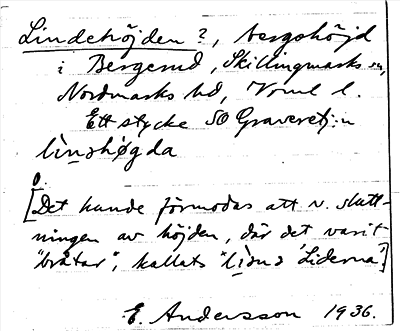 Lindehöjden?, bergshöjd
i Bergerud, Skillingmarks sn,
Nordmarks hd, Vrml l.
Ett stycke SO Graveretj:n
lìnshøgda
[Det kunde förmodas att v. slutt-
ningen av höjden, där det varit
"bråtar", kallats "Liderna"]
E. Andersson 1936.